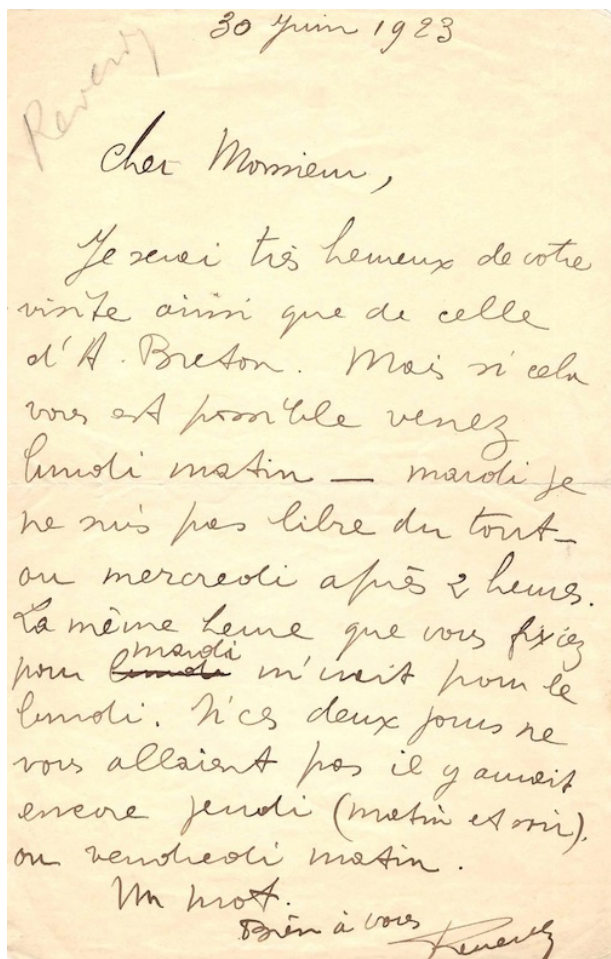 30 Juin 1923
Reverdy
cher Monsieur,
Je serai très heureux de votre
visite ainsi que de celle
d'A. Breton. Mais si cela
vous est possible venez
lundi matin — mardi je
ne suis pas libre du tout —
ou mercredi après 2 heures.
La même heure que vous fixiez
mardi
pour lundi m'irait pour le
lundi. Si ces deux jours ne
vous allaient pas il y aurait
encore jeudi (matin et soir).
ou vendredi matin.
Un mot.
Bien à vous
Reverdy